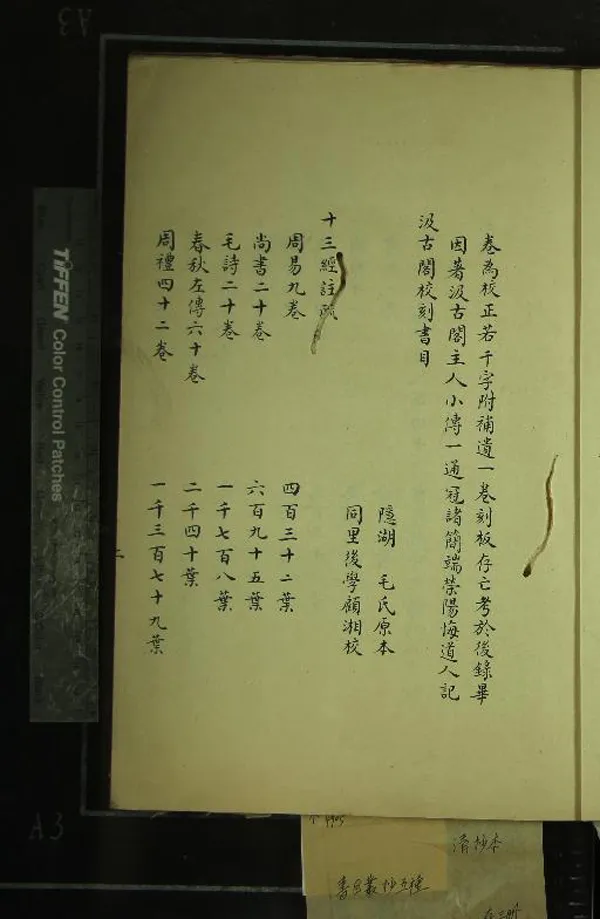 卷為校正若干字附補遺一卷刻板存亡考於後錄畢
因著汲古閣主人小傳一通冠諸簡端滎陽悔道人記
汲古閣校刻書目
隱湖 毛氏原本
同里後學顧湘校
十三經註疏
周易九卷 四百三十二葉
尚書二十卷 六百九十五葉
毛詩二十卷 一千七百八葉
春秋左傳六十卷 二千四十葉
周禮四十二卷 一千三百七十九葉
TIFFEN Color Control Patches
A3
A3
清抄本